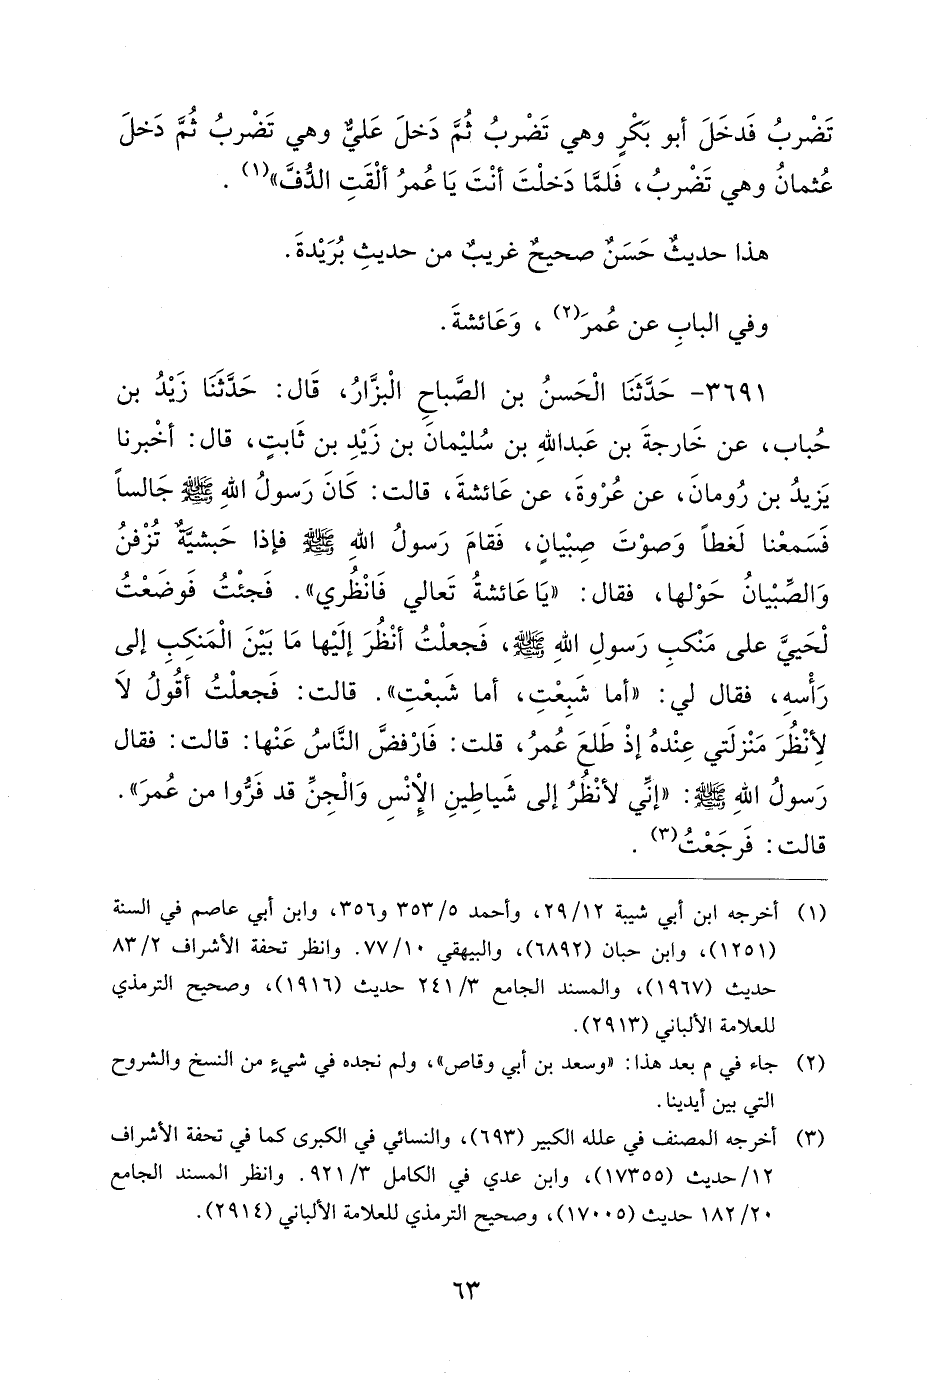 تَضْرِبُ فَدخَلَ أبو بَكْرٍ وهي تَضْرِبُ ثُمَّ دَخلَ عَليٌّ وهي تَضْرِبُ ثُمَّ دَخلَ
عُثمانُ وهي تَضْرِبُ، فَلمَّا دَخلْتَ أنْتَ يَا عمرُ ألْقَتِ الدُّفَّ»(١) .
هذا حديثٌ حَسَنٌ صحيحٌ غريبٌ من حديثِ بُرَيْدةَ.
وفي البابِ عن عُمرَ(٢) ، وَعَائشةَ.
٣٦٩١- حَدَّثَنَا الْحَسنُ بن الصَّباحِ الْبزَّارُ، قَال: حَدَّثَنَا زَيْدُ بن
حُباب، عن خَارجةَ بن عَبداللهِ بن سُليْمانَ بن زَيْدِ بن ثَابتٍ، قال: أخْبرنا
يَزيدُ بن رُومانَ، عن عُرْوةَ، عن عَائشةَ، قالت: كَانَ رَسولُ اللهِ ﷺ جَالساً
فَسَمعْنا لَغطاً وَصوْتَ صِبْيانٍ، فَقامَ رَسولُ اللهِ ﷺ فإذا حَبشيَّةٌ تُزْفنُ
وَالصِّبْيانُ حَوْلها، فقال: «يَا عَائشةُ تَعالي فَانْظُري». فَجئْتُ فَوضَعْتُ
لْحَييَّ على مَنْكبِ رَسولِ اللهِ ﷺ، فَجعلْتُ أنْظُرَ إلَيْها مَا بَيْنَ الْمَنكِبِ إلى
رَأْسهِ، فقال لي: «أما شَبِعْتِ، أما شَبعْتِ». قالت: فَجعلْتُ أقُولُ لاَ
لأِنْظُرَ مَنْزلَتي عِنْدهُ إذْ طَلعَ عُمرُ، قلت: فَارْفضَّ النَّاسُ عَنْها: قالت: فقال
رَسولُ اللهِ ﷺ: «إنِّي لأنْظُرُ إلى شَياطِينِ الإْنْسِ وَالْجنِّ قد فَرُّوا من عُمرَ».
قالت: فَرجَعْتُ(٣) .
(١) أخرجه ابن أبي شيبة ٢٩/١٢، وأحمد ٣٥٣/٥ و٣٥٦، وابن أبي عاصم في السنة
(١٢٥١)، وابن حبان (٦٨٩٢)، والبيهقي ٧٧/١٠. وانظر تحفة الأشراف ٨٣/٢
حديث (١٩٦٧)، والمسند الجامع ٢٤١/٣ حديث (١٩١٦)، وصحيح الترمذي
للعلامة الألباني (٢٩١٣).
(٢) جاء في م بعد هذا: «وسعد بن أبي وقاص»، ولم نجده في شيءٍ من النسخ والشروح
التي بين أيدينا.
(٣) أخرجه المصنف في علله الكبير (٦٩٣)، والنسائي في الكبرى كما في تحفة الأشراف
١٢/حديث (١٧٣٥٥)، وابن عدي في الكامل ٩٢١/٣. وانظر المسند الجامع
١٨٢/٢٠ حديث (١٧٠٠٥)، وصحيح الترمذي للعلامة الألباني (٢٩١٤).
٦٣